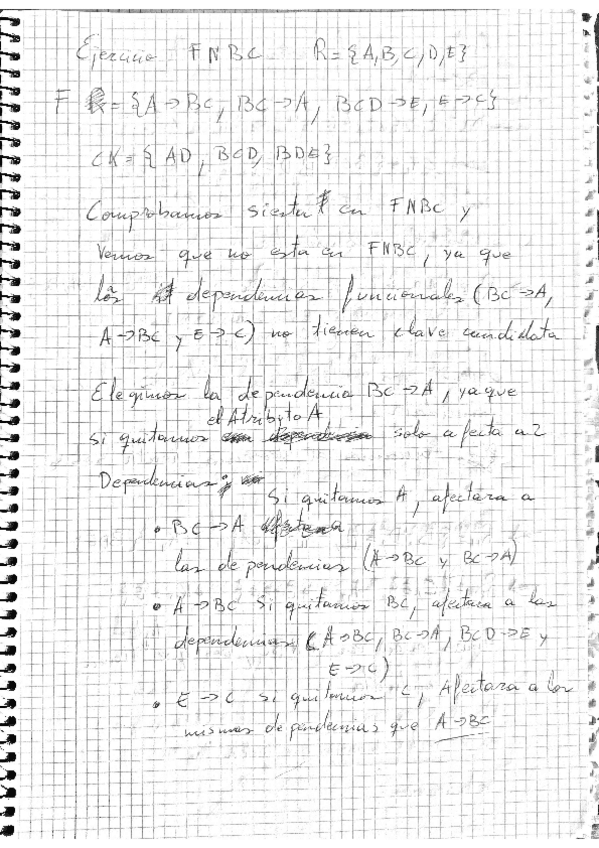 Ejercicio FNBC R={A,B,C,D,E}
F = {A→BC, BC→A, BCD→E, E→C}
CK = { AD, BCD, BDE}
Comprobamos si esta en FNBC y
Vemos que no esta en FNBC, ya que
las dependencias funcionales (BC→A,
A→BC y E→C) no tienen clave candidata
Elegimos la dependencia BC→A, ya que
el Atributo A
si quitamos solo afecta a 2
Dependencias:
Si quitamos A, afectara a
• BC→A
las dependencias (A→BC y BC→A)
• A→BC Si quitamos BC, afectara a las
dependencias (A→BC, BC→A, BCD→E y
E→C)
• E→C si quitamos C, Afectara a las
mismas dependencias que A→BC